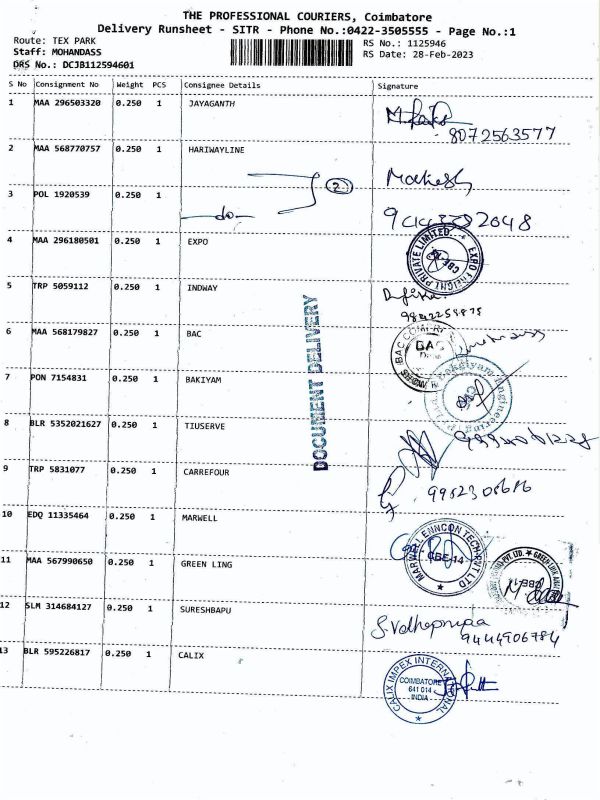 THE PROFESSIONAL COURIERS, Coimbatore
Delivery Runsheet - SITR - Phone No.:0422-3505555 - Page No.:1
Route: TEX PARK
RS No.: 1125946
Staff: MOHANDASS
RS Date: 28-Feb-2023
DRS No.: DCJB112594601
S No Consignment No Weight PCS Consignee Details Signature
1 MAA 296503320 0.250 1 JAYAGANTH
8072563577
2 MAA 568770757 0.250 1 HARIWAYLINE
2 Mahesh
3 POL 1920539 0.250 1
-do-
4 MAA 296180501 0.250 1 EXPO
EXPO FREIGHT PRIVATE LIMITED.
CBE
5 TRP 5059112 0.250 1 INDWAY
6 MAA 568179827 0.250 1 BAC
BAC
7 PON 7154831 0.250 1 BAKIYAM
DOCUMENT DELIVERY
8 BLR 5352021627 0.250 1 TIUSERVE
9 TRP 5831077 0.250 1 CARREFOUR
10 EDQ 11335464 0.250 1 MARWELL
MARWEL ENNCON TECH PVT LTD
CBE-14
11 MAA 567990650 0.250 1 GREEN LING
12 SLM 314684127 0.250 1 SURESHBAPU
9444906784
13 BLR 595226817 0.250 1 CALIX
CALIX IMPEX INTERNATIONAL
COIMBATORE
641 014
INDIA